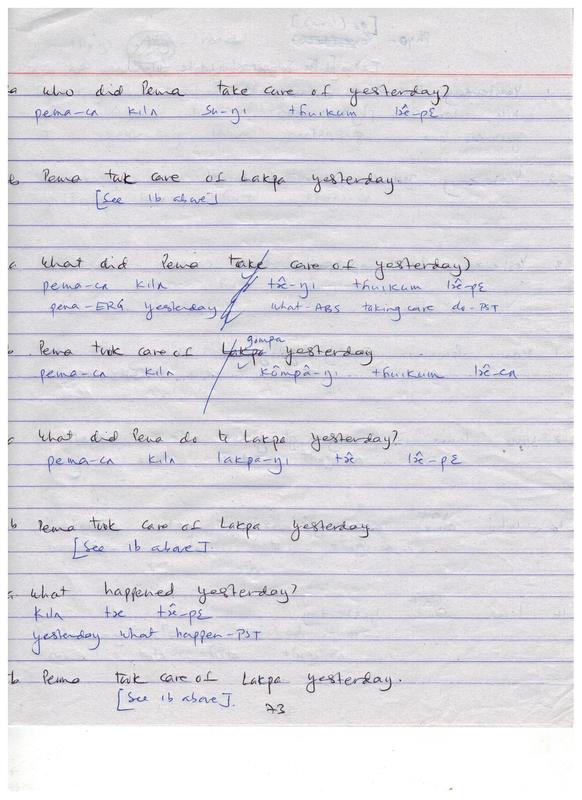 a who did Pema take care of yesterday?
pema-cʌ kilʌ su-ŋi thuikum
b Pema took care of Lakpa yesterday.
[See 1b above]
a What did Pema take care of yesterday?
pema-cʌ kilʌ thuikum
pema-ERG yesterday what-ABS taking care do-PST
gompa
b Pema took care of Lakpa yesterday
pema-cʌ kilʌ kômpâ-ŋi thuikum
a What did Pema do to Lakpa yesterday?
pema-cʌ kilʌ lakpa-ŋi
b Pema took care of Lakpa yesterday
[See 1b above].
a What happened yesterday?
kilʌ
yesterday what happen-PST
b Pema took care of Lakpa yesterday.
[See 1b above].
73